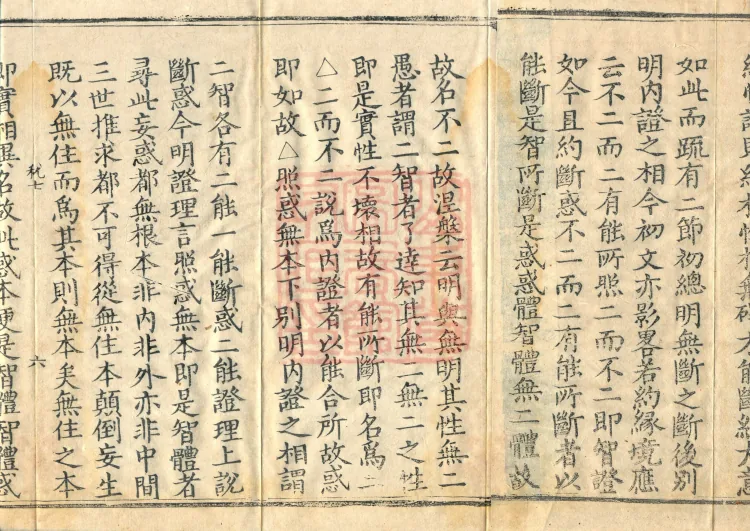 如此而疏有二節初總明無斷之斷後別
明內證之相今初文亦影畧若約緣境應
云不二而二有能所照二而不二即智證
如今且約斷惑不二而二有能所斷者以
能斷是智所斷是惑惑體智體無二體故
故名不二故涅槃云明與無明其性無二
愚者謂二智者了達知其無二無二之性
即是實性不壞相故有能所斷即名爲二
△二而不二說爲內證者以能合所故惑
即如故△照惑無本下別明內證之相謂
二智各有二能一能斷惑二能證理上說
斷惑今明證理言照惑無本即是智體者
尋此妄惑都無根本非內非外亦非中間
三世推求都不可得從無住本顛倒妄生
既以無住而爲其本則無本矣無住之本
稅七
六
即實相異名故此惑本便是智體智體惑